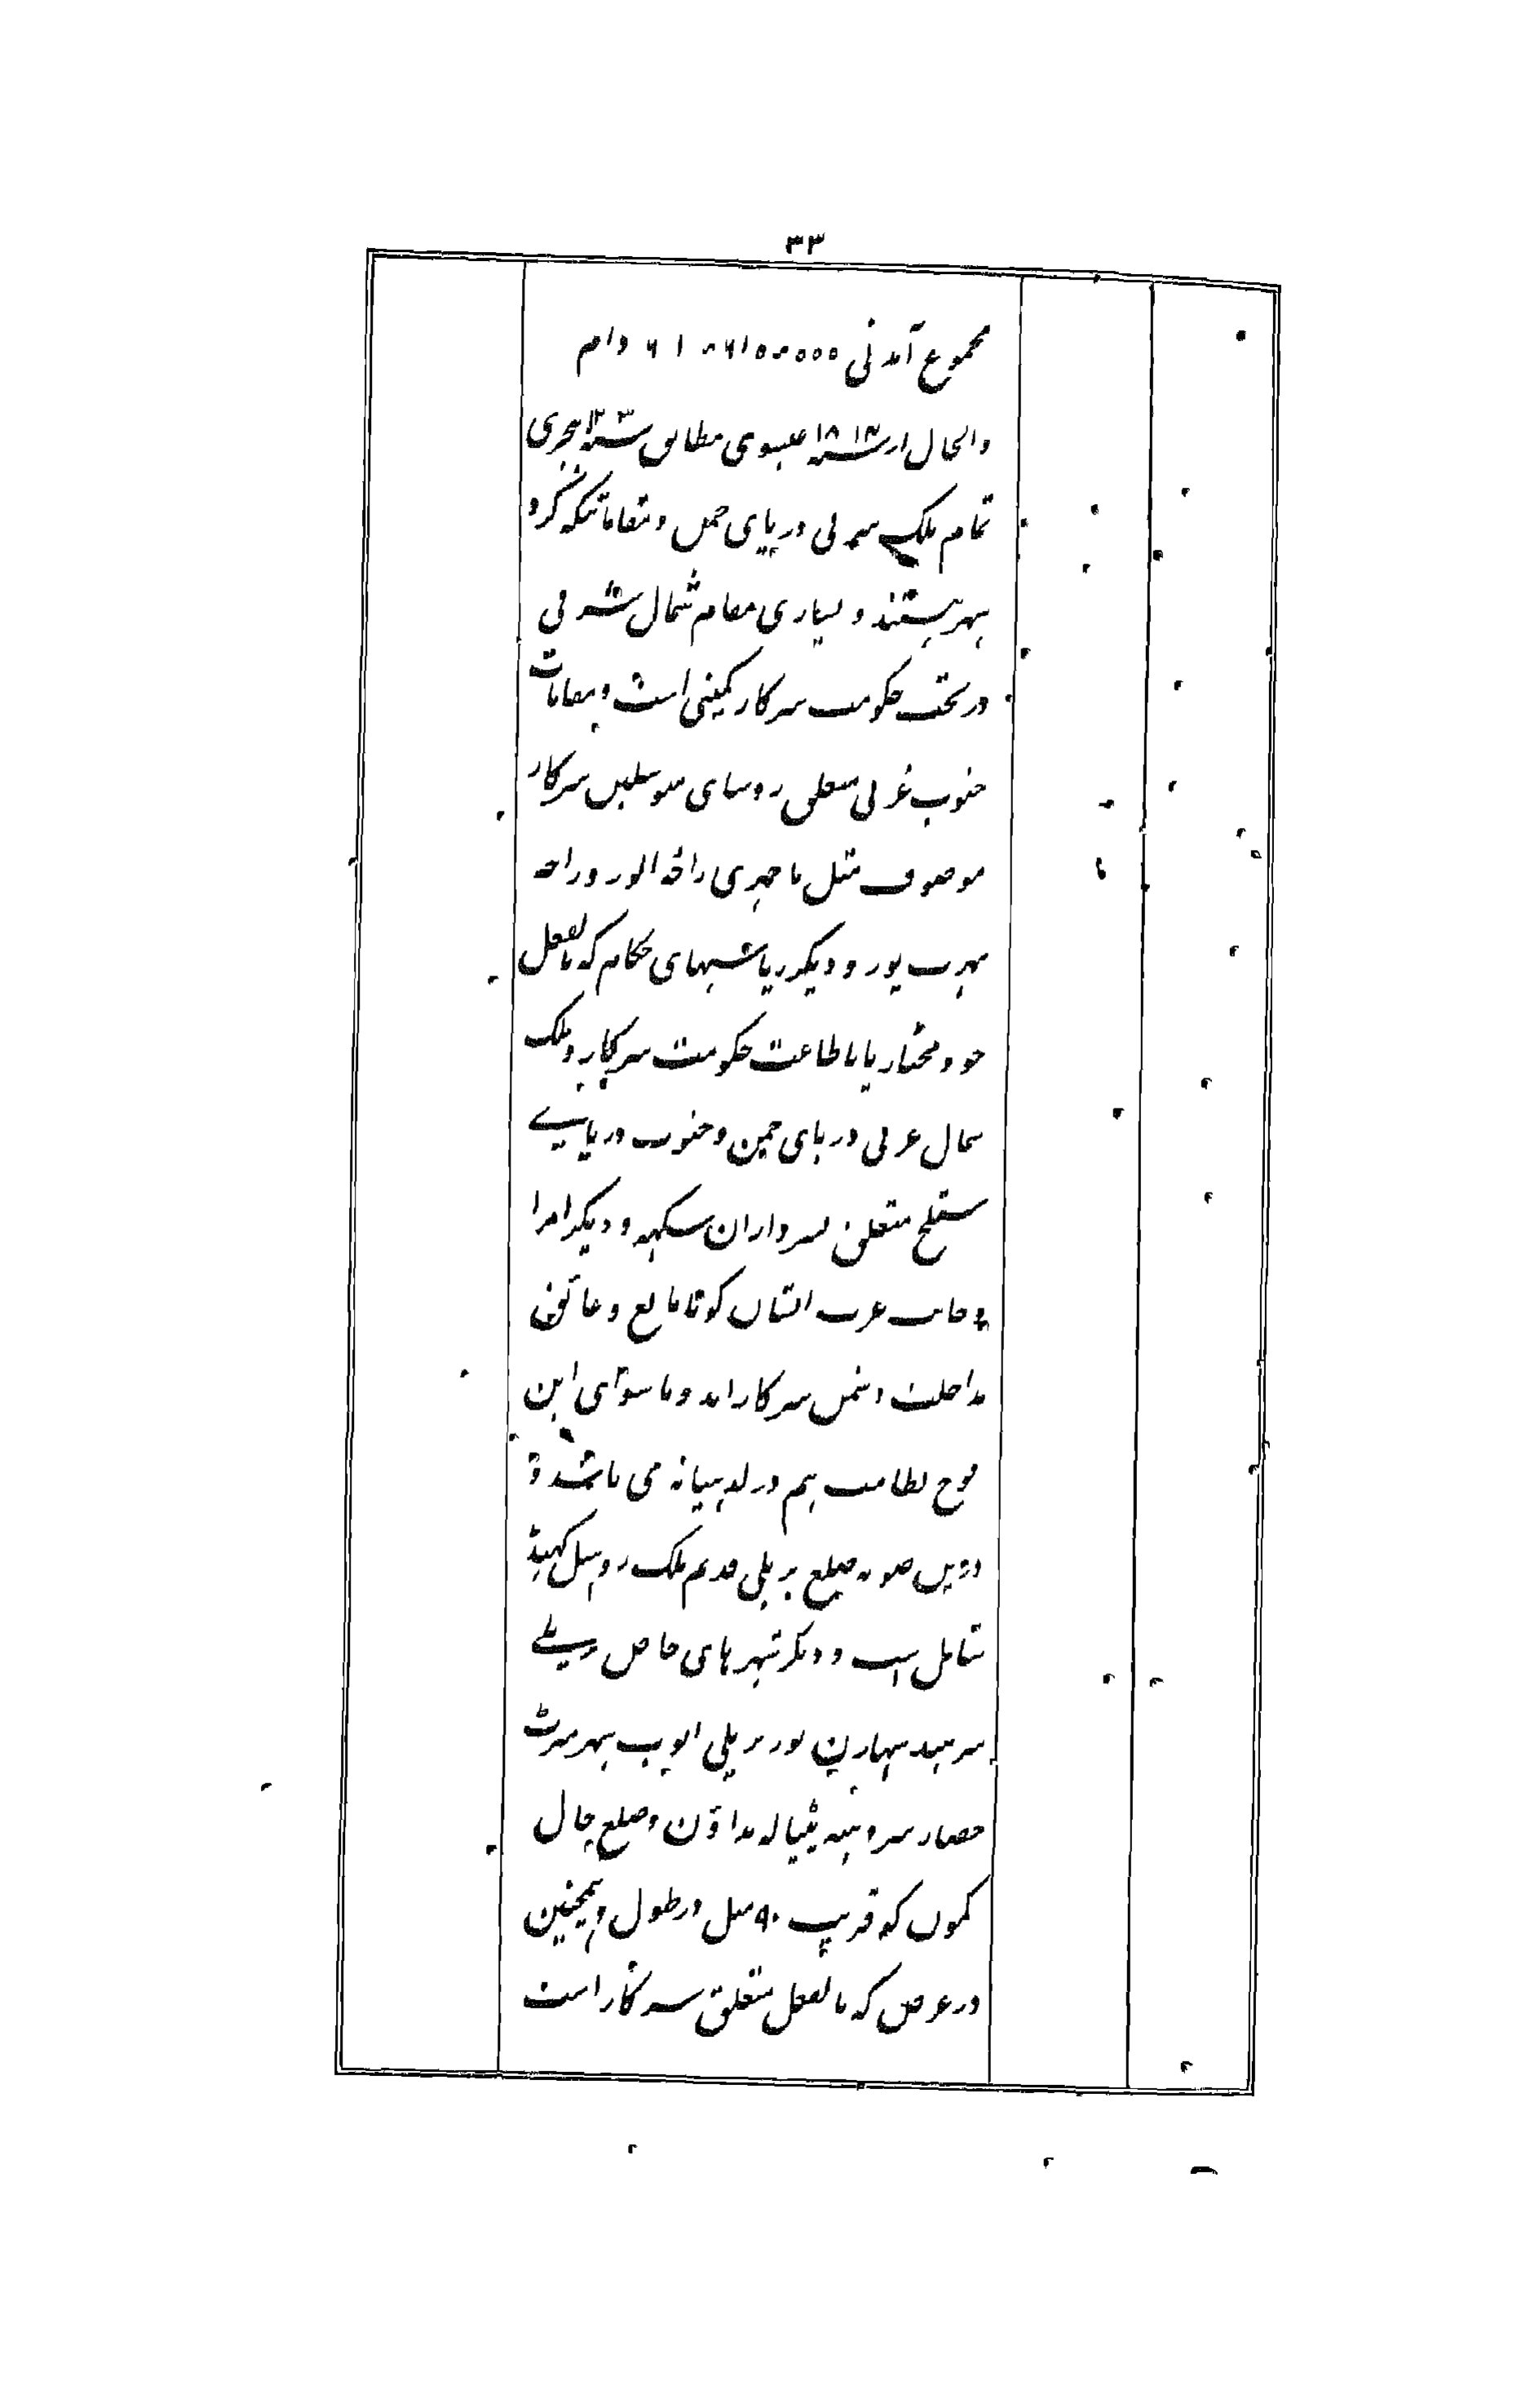 ۳۳
مجموع آمدنی دام
والحال از عیسوی مطابق هجری
تمام ملک شرقی دریای جمن و مقاماتیکه گرد
بهر هستند و بسیاری مقام شمال شرقی
در تحت حکومت سرکار کمپنی است و مقامات
جنوب غربی متعلق روسای متوسلین سرکار
موصوف مثل ماچهری راجه الور و راجه
بهرت پور و دیگر ریاستهای حکام که بالفعل
خود مختار یا باطاعت حکومت سرکار و ملک
شمال غربی دریای جمن و جنوب دریایے
ستلج متعلق بسرداران سکهه و دیگر امرا
و جانب غرب ایشان گویا مانع و عائق
مداخلت دشمن سرکار اند و ماسوای این
فوج نظامت هم در لدهیانه می باشد و
درین صوبه ضلع بریلی قدیم ملک روهیل کهنڈ
شامل است و دیگر شهرهای خاص دہلے
سرهند سهارن پور بریلی انوپ شهر میرٹ
حصار سروهنه پٹیاله بداؤن و ضلع جال
کموں که قریب ۹۰ میل در طول و همچنین
در عرض که بالفعل متعلق سرکار است